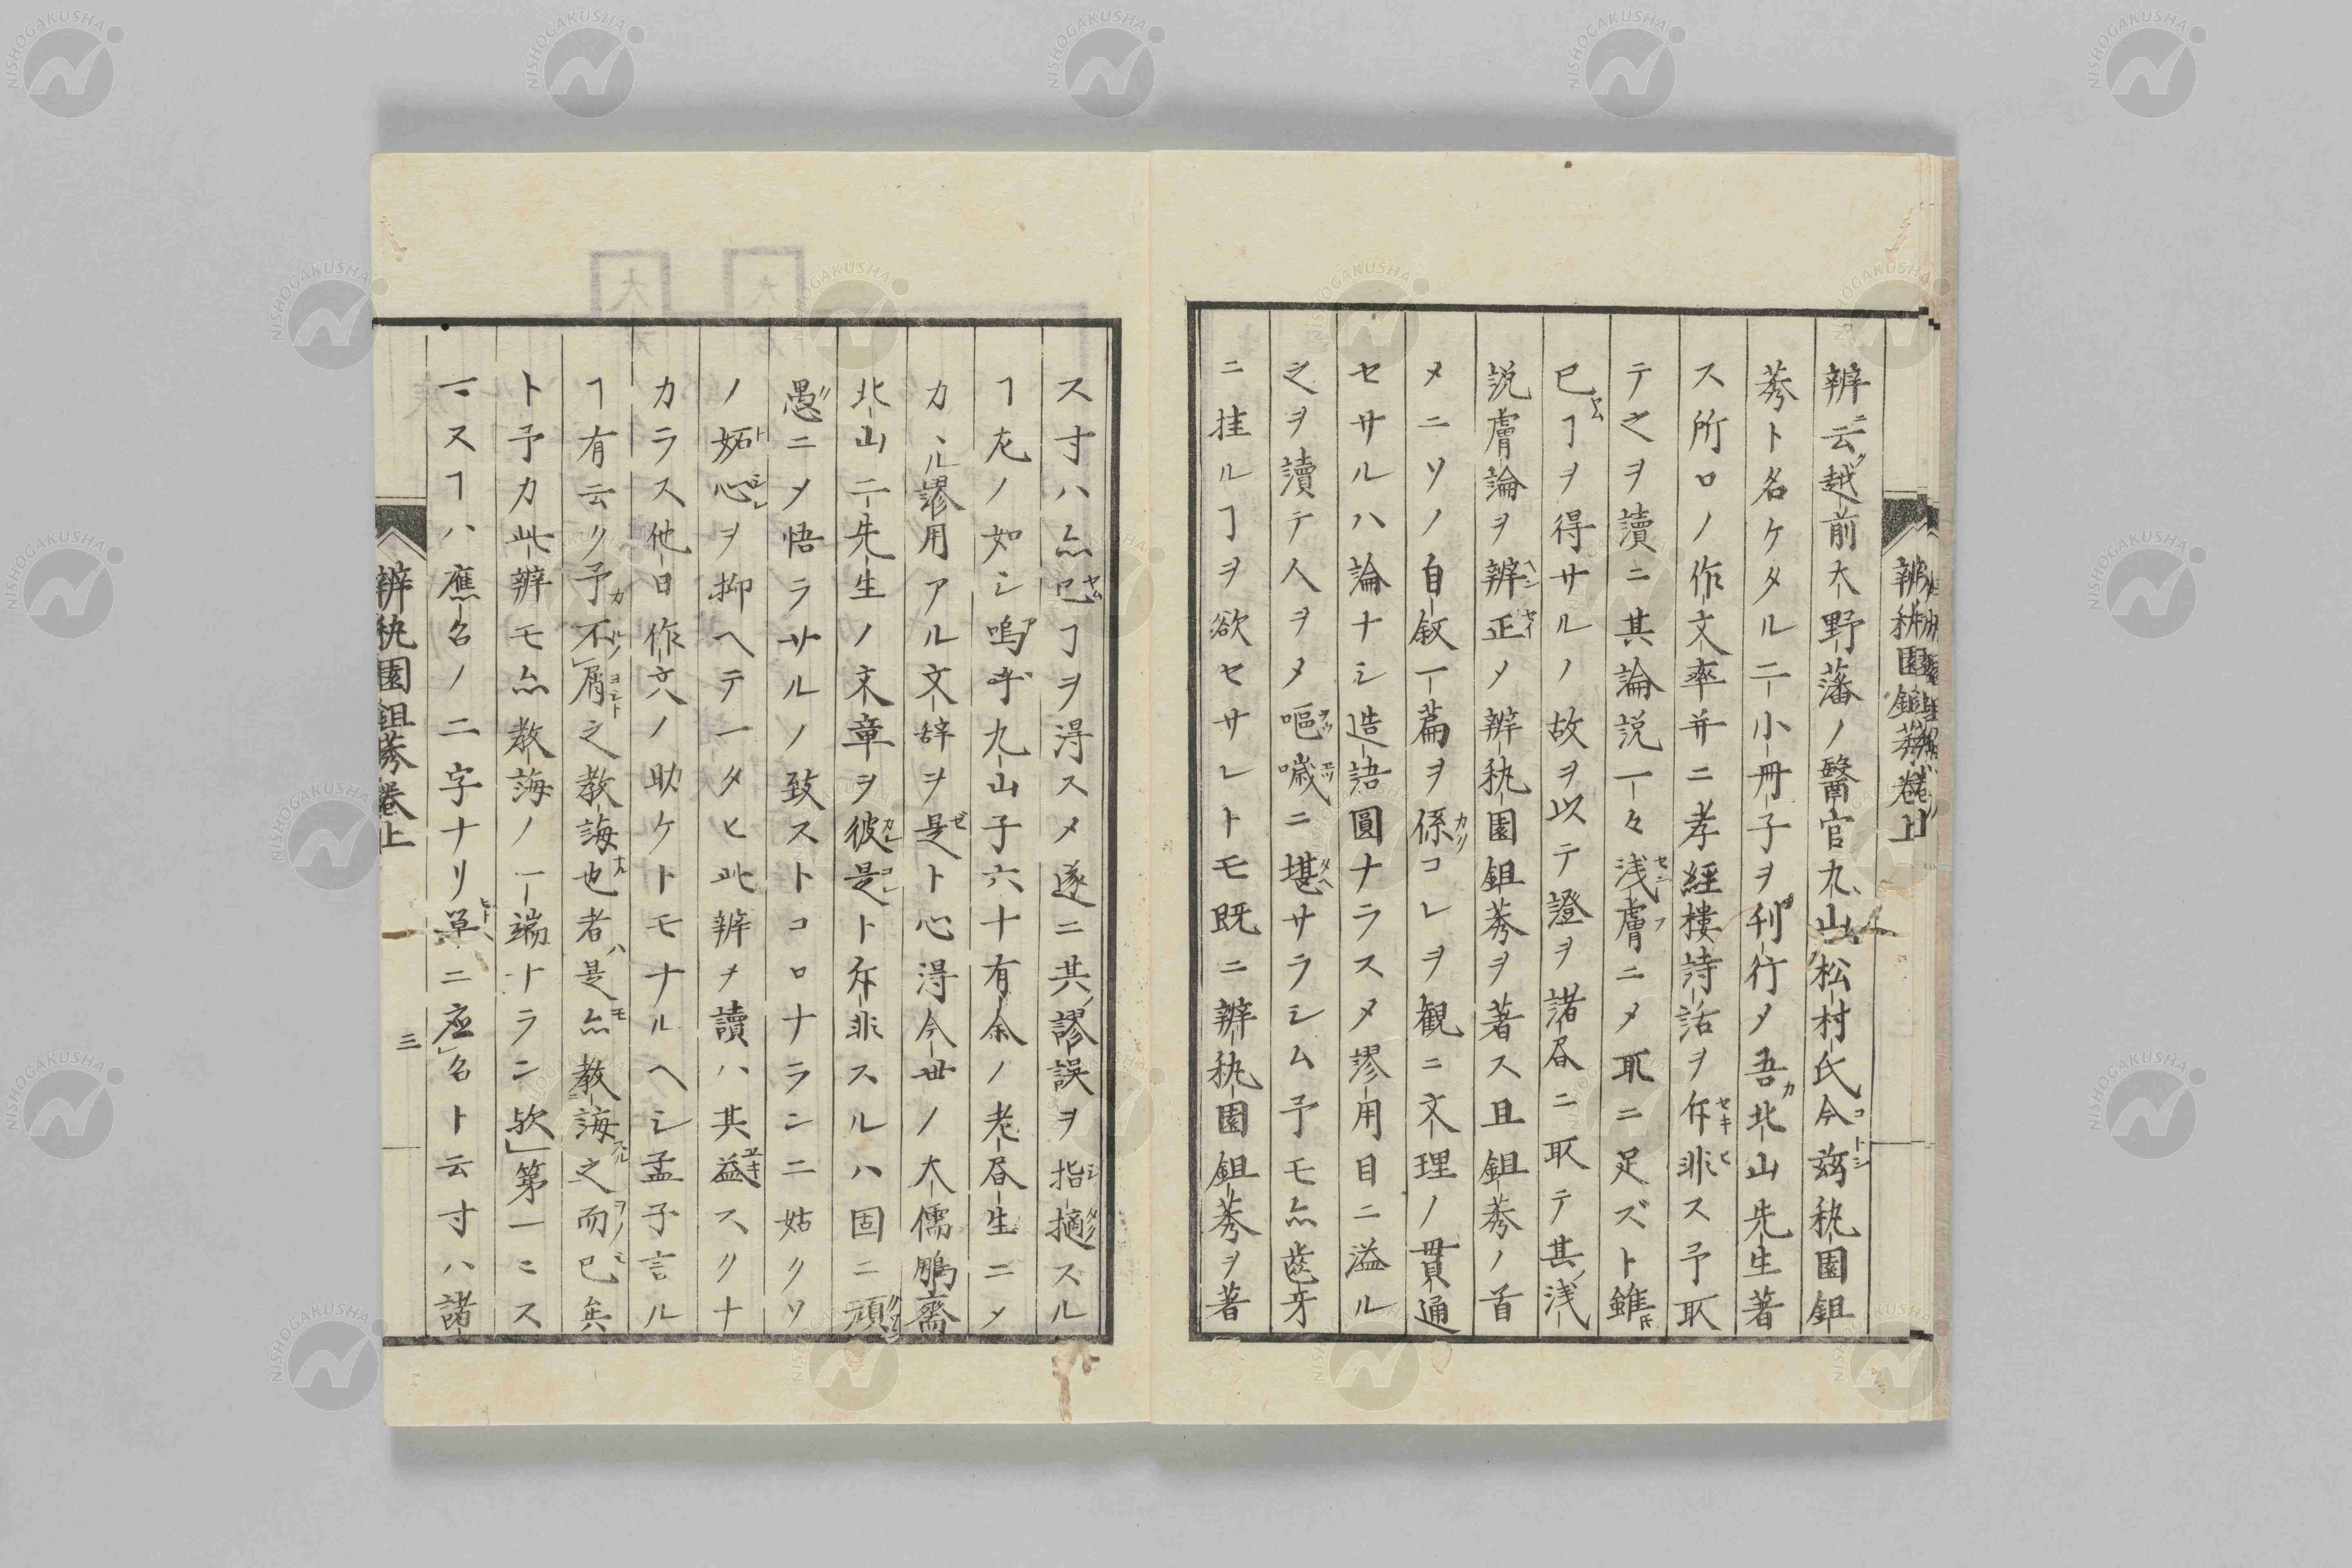 辨ニ云ク越前大野藩ノ醫官九山松村氏今茲藝園鉏
莠ト名ケタル二小冊子ヲ刊行メ吾カ北山先生著
ス所ロノ作文率并ニ孝經樓詩話ヲ斥非ス予取
テ之ヲ讀ニ其論説一々浅膚ニメ取ニ足ズト雖𪜈
已ヿヲ得サルノ故ヲ以テ證ヲ諸君ニ取テ其浅
説膚論ヲ辨正メ辨藝園鉏莠ヲ著ス且鉏莠ノ首
メニソノ自敘一篇ヲ係コレヲ観ニ文理ノ貫通
セサルハ論ナシ造語圓ナラスメ謬用目ニ溢ル
之ヲ讀テ人ヲメ嘔噦ニ堪サラシム予モ亦齒牙
ニ挂ルヿヲ欲セサレトモ既ニ辨藝園鉏莠ヲ著
ス寸ハ亦已ヿヲ得スメ遂ニ其謬誤ヲ指摘スル
ヿ左ノ如シ嗚呼九山子六十有余ノ老君生ニメ
カヽル謬用アル文辞ヲ是ト心得今世ノ大儒鵬齋
北山二先生ノ文章ヲ彼是ト斥非スルハ固ニ頑
愚ニメ悟ラサルノ致ストコロナランニ姑クソ
ノ妬心ヲ抑ヘテ一タヒ此辨ヲ讀ハ其益スクナ
カラス他日作文ノ助ケトモナルヘシ孟子言ル
ヿ有云ク予不屑之教誨也者是亦教誨之而已矣
ト予カ此辨モ亦教誨ノ一端ナランニ欤第一ニス
マスヿハ應名ノ二字ナリ單ニ應名ト云寸ハ諸
辨藝園鉏莠巻上
三
辨藝園鉏莠巻上
NISHOGAKUSHA